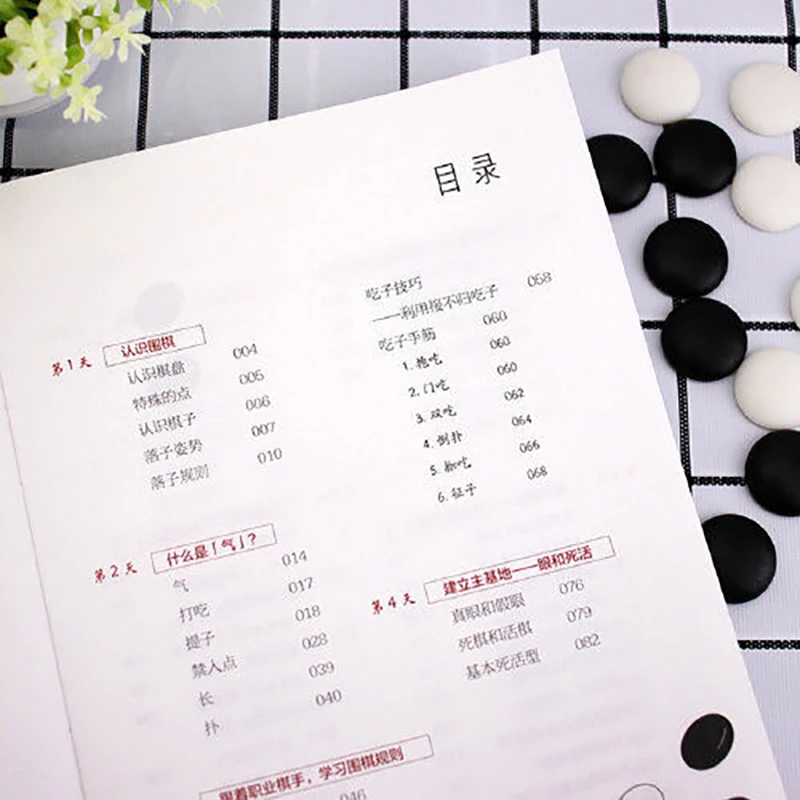 目录
第1天 认识围棋
认识棋盘 004
特殊的点 005
认识棋子 006
落子姿势 007
落子规则 010
第2天 什么是「气」？
气 014
打吃 017
提子 018
禁入点 028
长 039
扑 040
跟着职业棋手，学习围棋规则
046
吃子技巧
——利用接不归吃子 058
吃子手筋 060
1. 抱吃 060
2. 门吃 060
3. 双吃 062
4. 倒扑 064
5. 枷吃 066
6. 征子 068
第4天 建立主基地——眼和死活
真眼和假眼 076
死棋和活棋 079
基本死活型 082